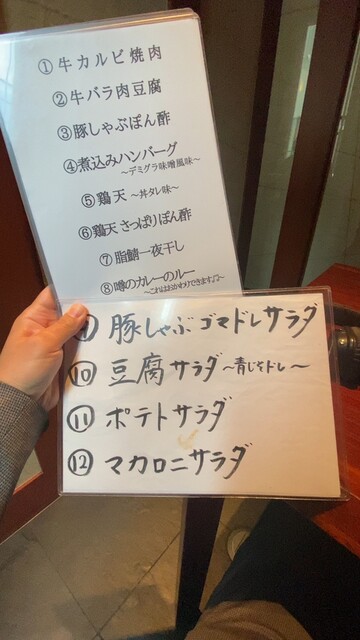 ①牛カルビ焼肉
②牛バラ肉豆腐
③豚しゃぶぽん酢
④煮込みハンバーグ
～デミグラ味噌風味～
⑤鶏天 ～丼タレ味～
⑥鶏天 さっぱりぽん酢
⑦脂鯖一夜干し
⑧噂のカレーのルー
～これはおかわりできます♫～
豚しゃぶゴマドレサラダ
⑩豆腐サラダ～青じそドレ～
⑪ポテトサラダ
⑫マカロニサラダ